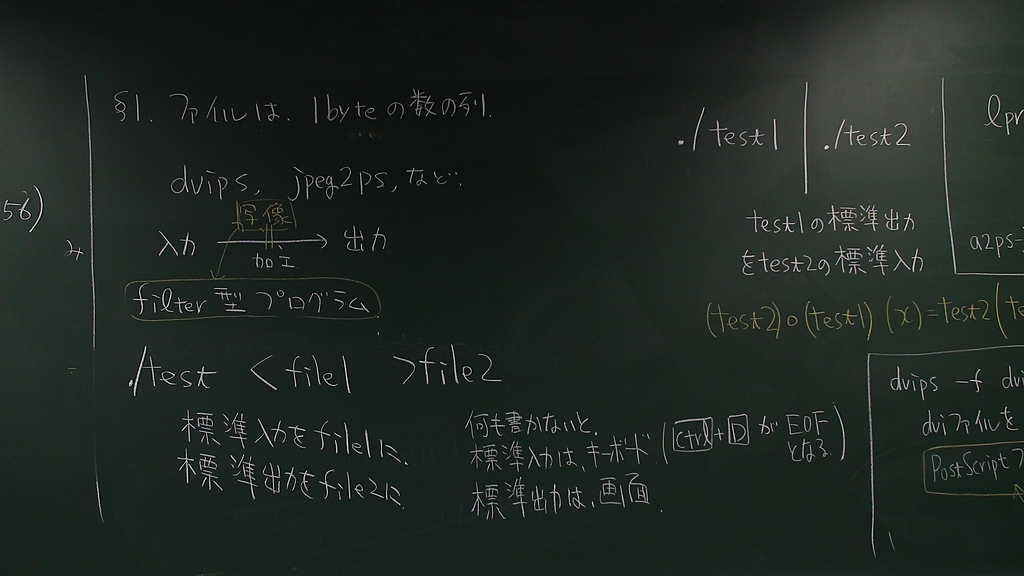 56)
み
§1. ファイルは、1byteの数の列.
dvips, jpeg2ps, など.
写像
入力 → 出力
加工
filter型 プログラム
./test < file1 > file2
標準入力をfile1に、
標準出力をfile2に
何も書かないと、
標準入力は、キーボード (Ctrl+D が EOF となる)
標準出力は、画面.
./test1 | ./test2
test1の標準出力
をtest2の標準入力
(test2)∘(test1) (x)=test2(te
lpr
a2ps-
dvips -f dv
dviファイルを
PostScript